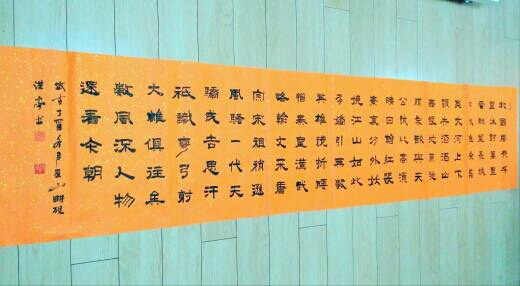 北國風光千
里冰封萬里
雪飄望長城
內外惟余莽
莽大河上下
頓失滔滔山
舞銀蛇原馳
蠟象欲與天
公試比高須
晴日看紅裝
素裹分外妖
嬈江山如此
多嬌引無數
英雄競折腰
惜秦皇漢武
略輸文采唐
宗宋祖稍遜
風騷一代天
驕成吉思汗
祇識彎弓射
大雕俱往矣
數風流人物
還看今朝
歲在丁酉年月山耕硯
書